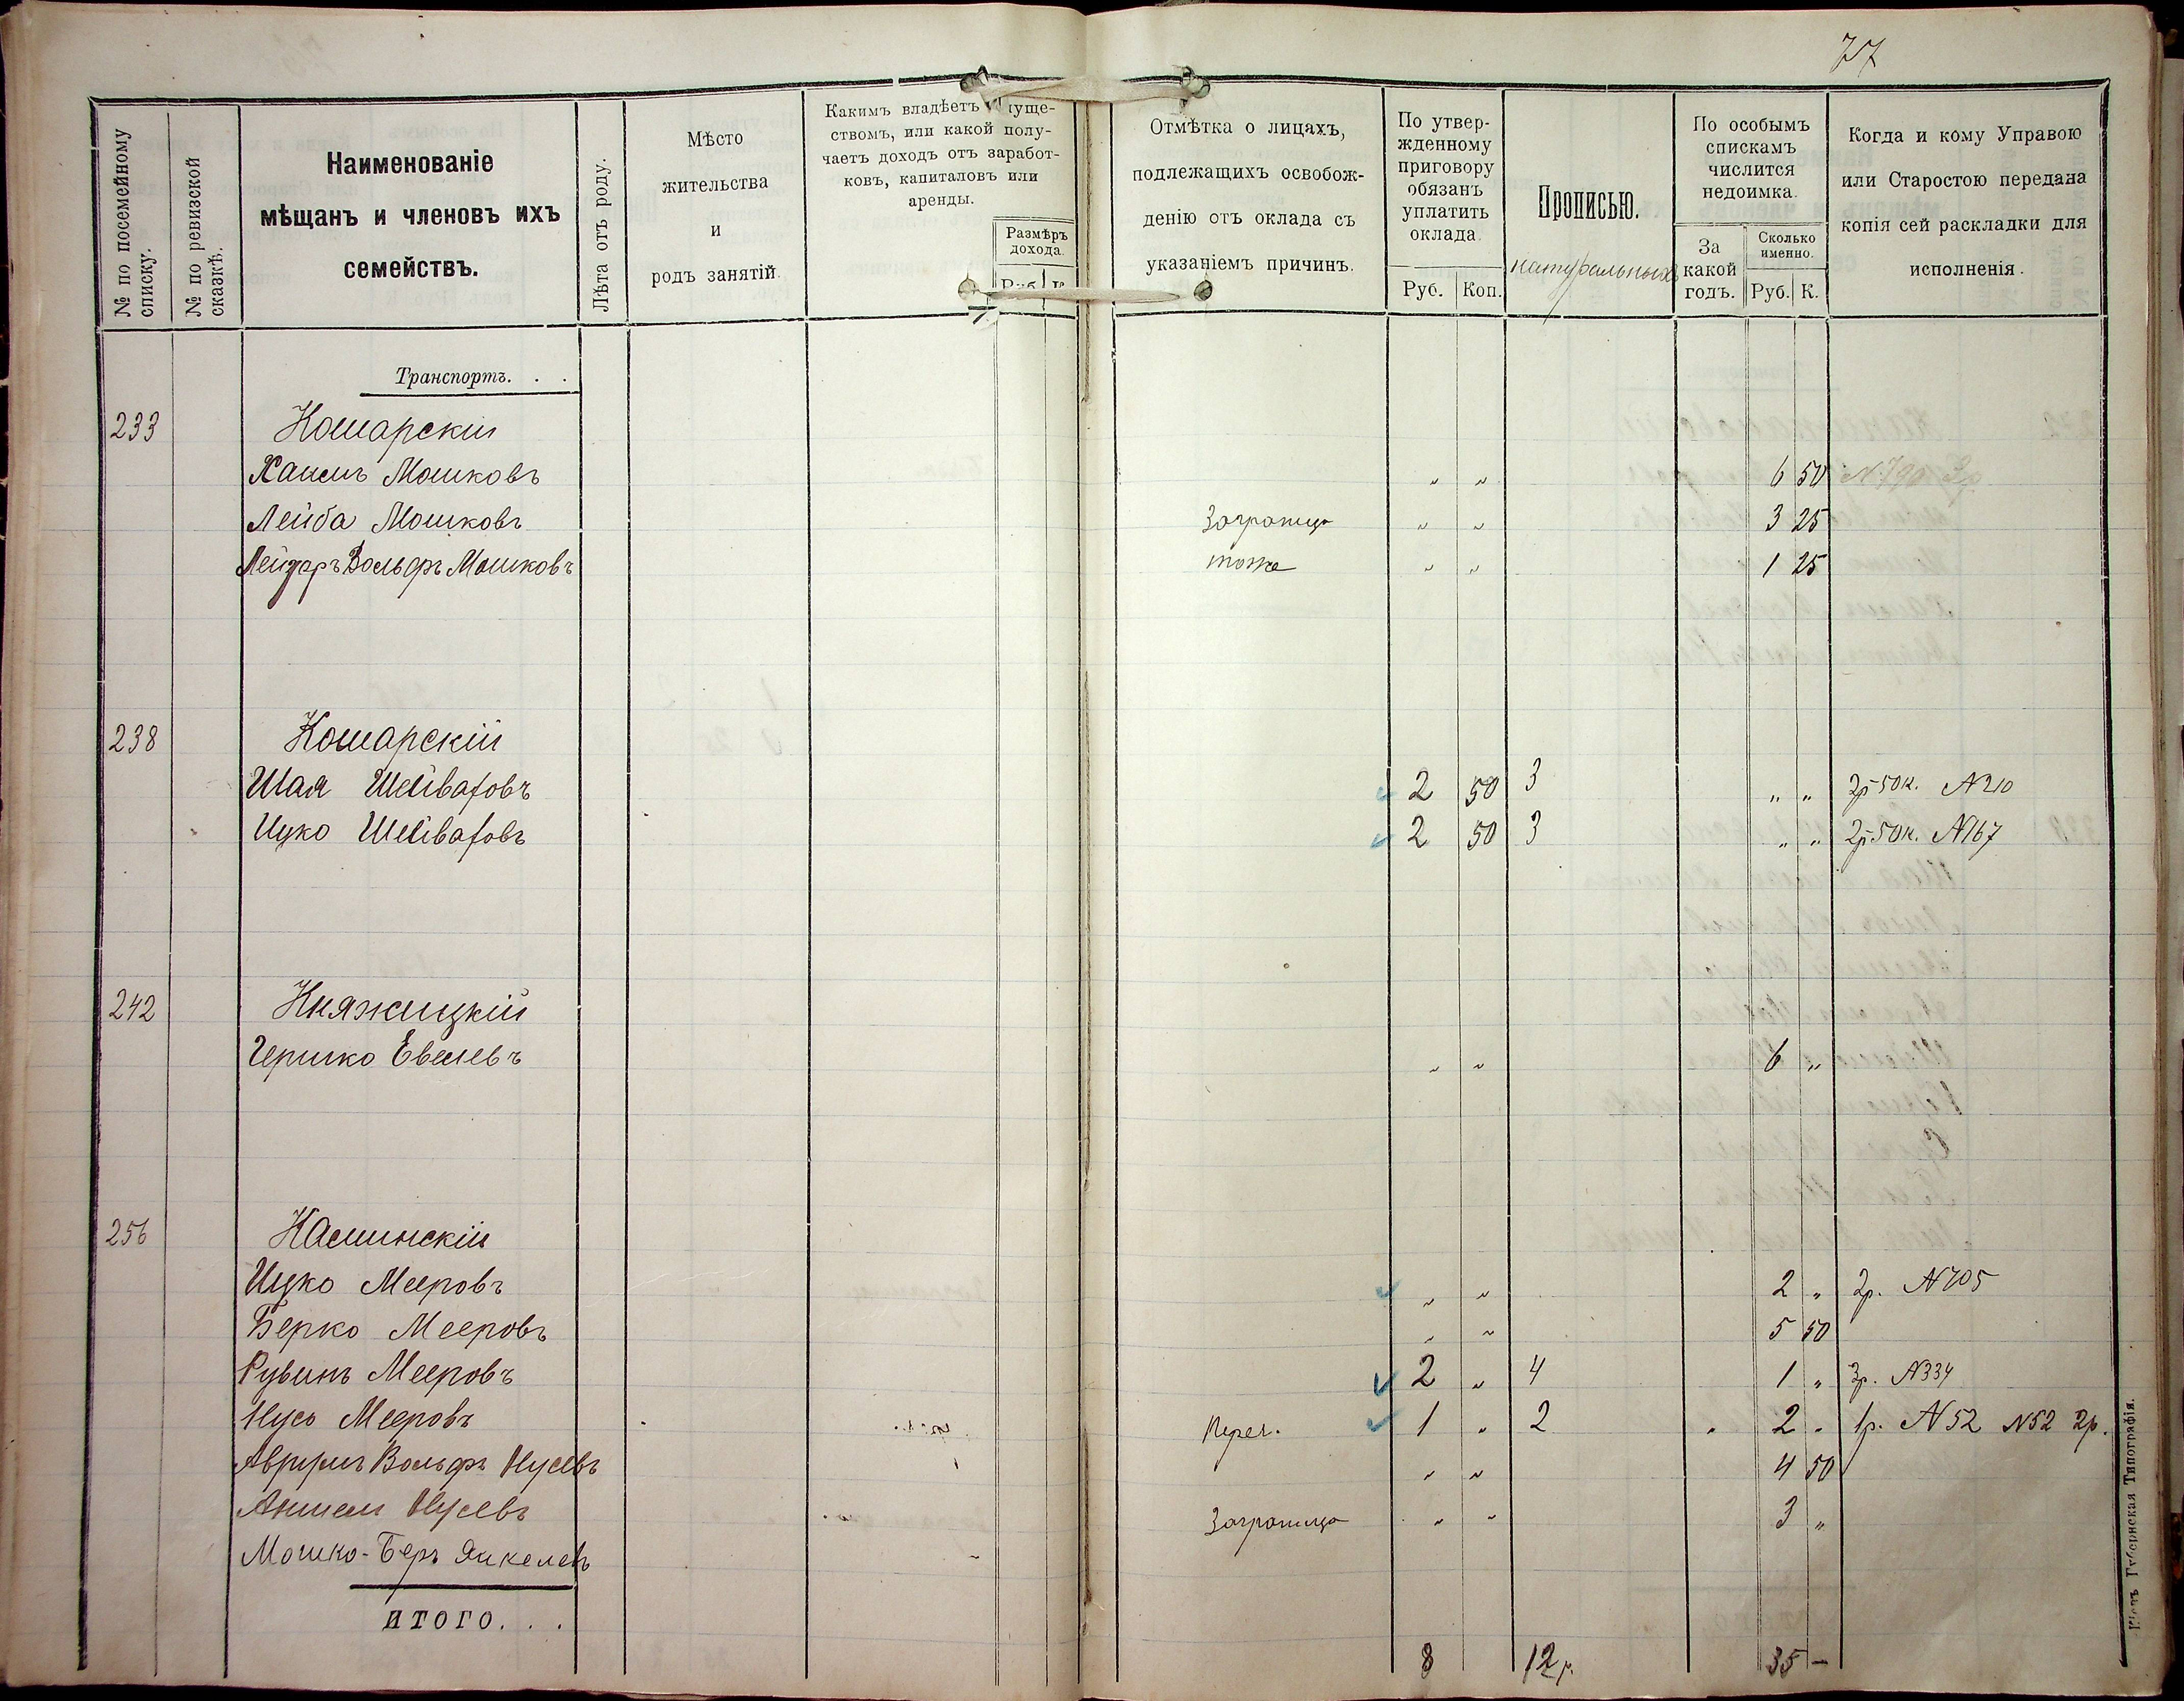 77
№ по посемейному списку.
№ по ревизской сказкѣ.
Наименованіе
мѣщанъ и членовъ ихъ
семействъ.
Лѣта отъ роду.
Мѣсто
жительства
и
родъ занятій.
Какимъ владѣетъ
ствомъ, или какой полу-
чаетъ доходъ отъ заработ-
ковъ, капиталовъ или
аренды.
Размѣръ
дохода.
Руб. К.
Отмѣтка о лицахъ,
подлежащихъ освобож-
денію отъ оклада съ
указаніемъ причинъ.
По утвер-
жденному
приговору
обязанъ
уплатить
оклада.
Руб. Коп.
Прописью.
натуральныхъ
По особымъ
спискамъ
числится
недоимка.
За
какой
годъ.
Сколько
именно.
Руб. К.
Когда и кому Управою
или Старостою передана
копія сей раскладки для
исполненія.
Транспортъ. . .
233 Кошарскій
Хаимъ Мошковъ " " 6 50 N 790 3р
Лейба Мошковъ Заграница " " 3 25
Лейзеръ Вольфъ Мошковъ тоже " " 1 25
238 Кошарскій
Шая Шейваховъ 2 50 3 " " 2р 50к. N 210
Ицко Шейваховъ 2 50 3 " " 2р 50к. N 167
242 Княжицкій
Гершко Евелевъ " " 6 "
256 Каминскій
Ицко Мееровъ " " 2 " 2р. N 705
Берко Мееровъ " " 5 50
Рувинъ Мееровъ 2 " 4 1 " 3р. N 334
Нусь Мееровъ Переч. 1 " 2 " 2 " 1р. N 52 N 52 2р.
Аврумъ Вольфъ Нусевъ " " 4 50
Аншель Нусевъ Заграница " " 3 "
Мошко-Беръ Янкелевъ
ИТОГО. . .
8 12 р. 35 —
Кіевъ Губернская Типографія.